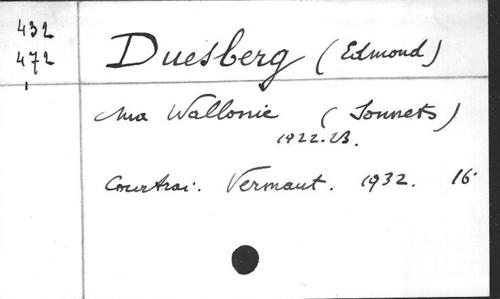 432
472
Duesberg (Edmond)
Ma Wallonie (Sonnets)
1922.23.
Courtrai. Vermaut. 1932. 16°